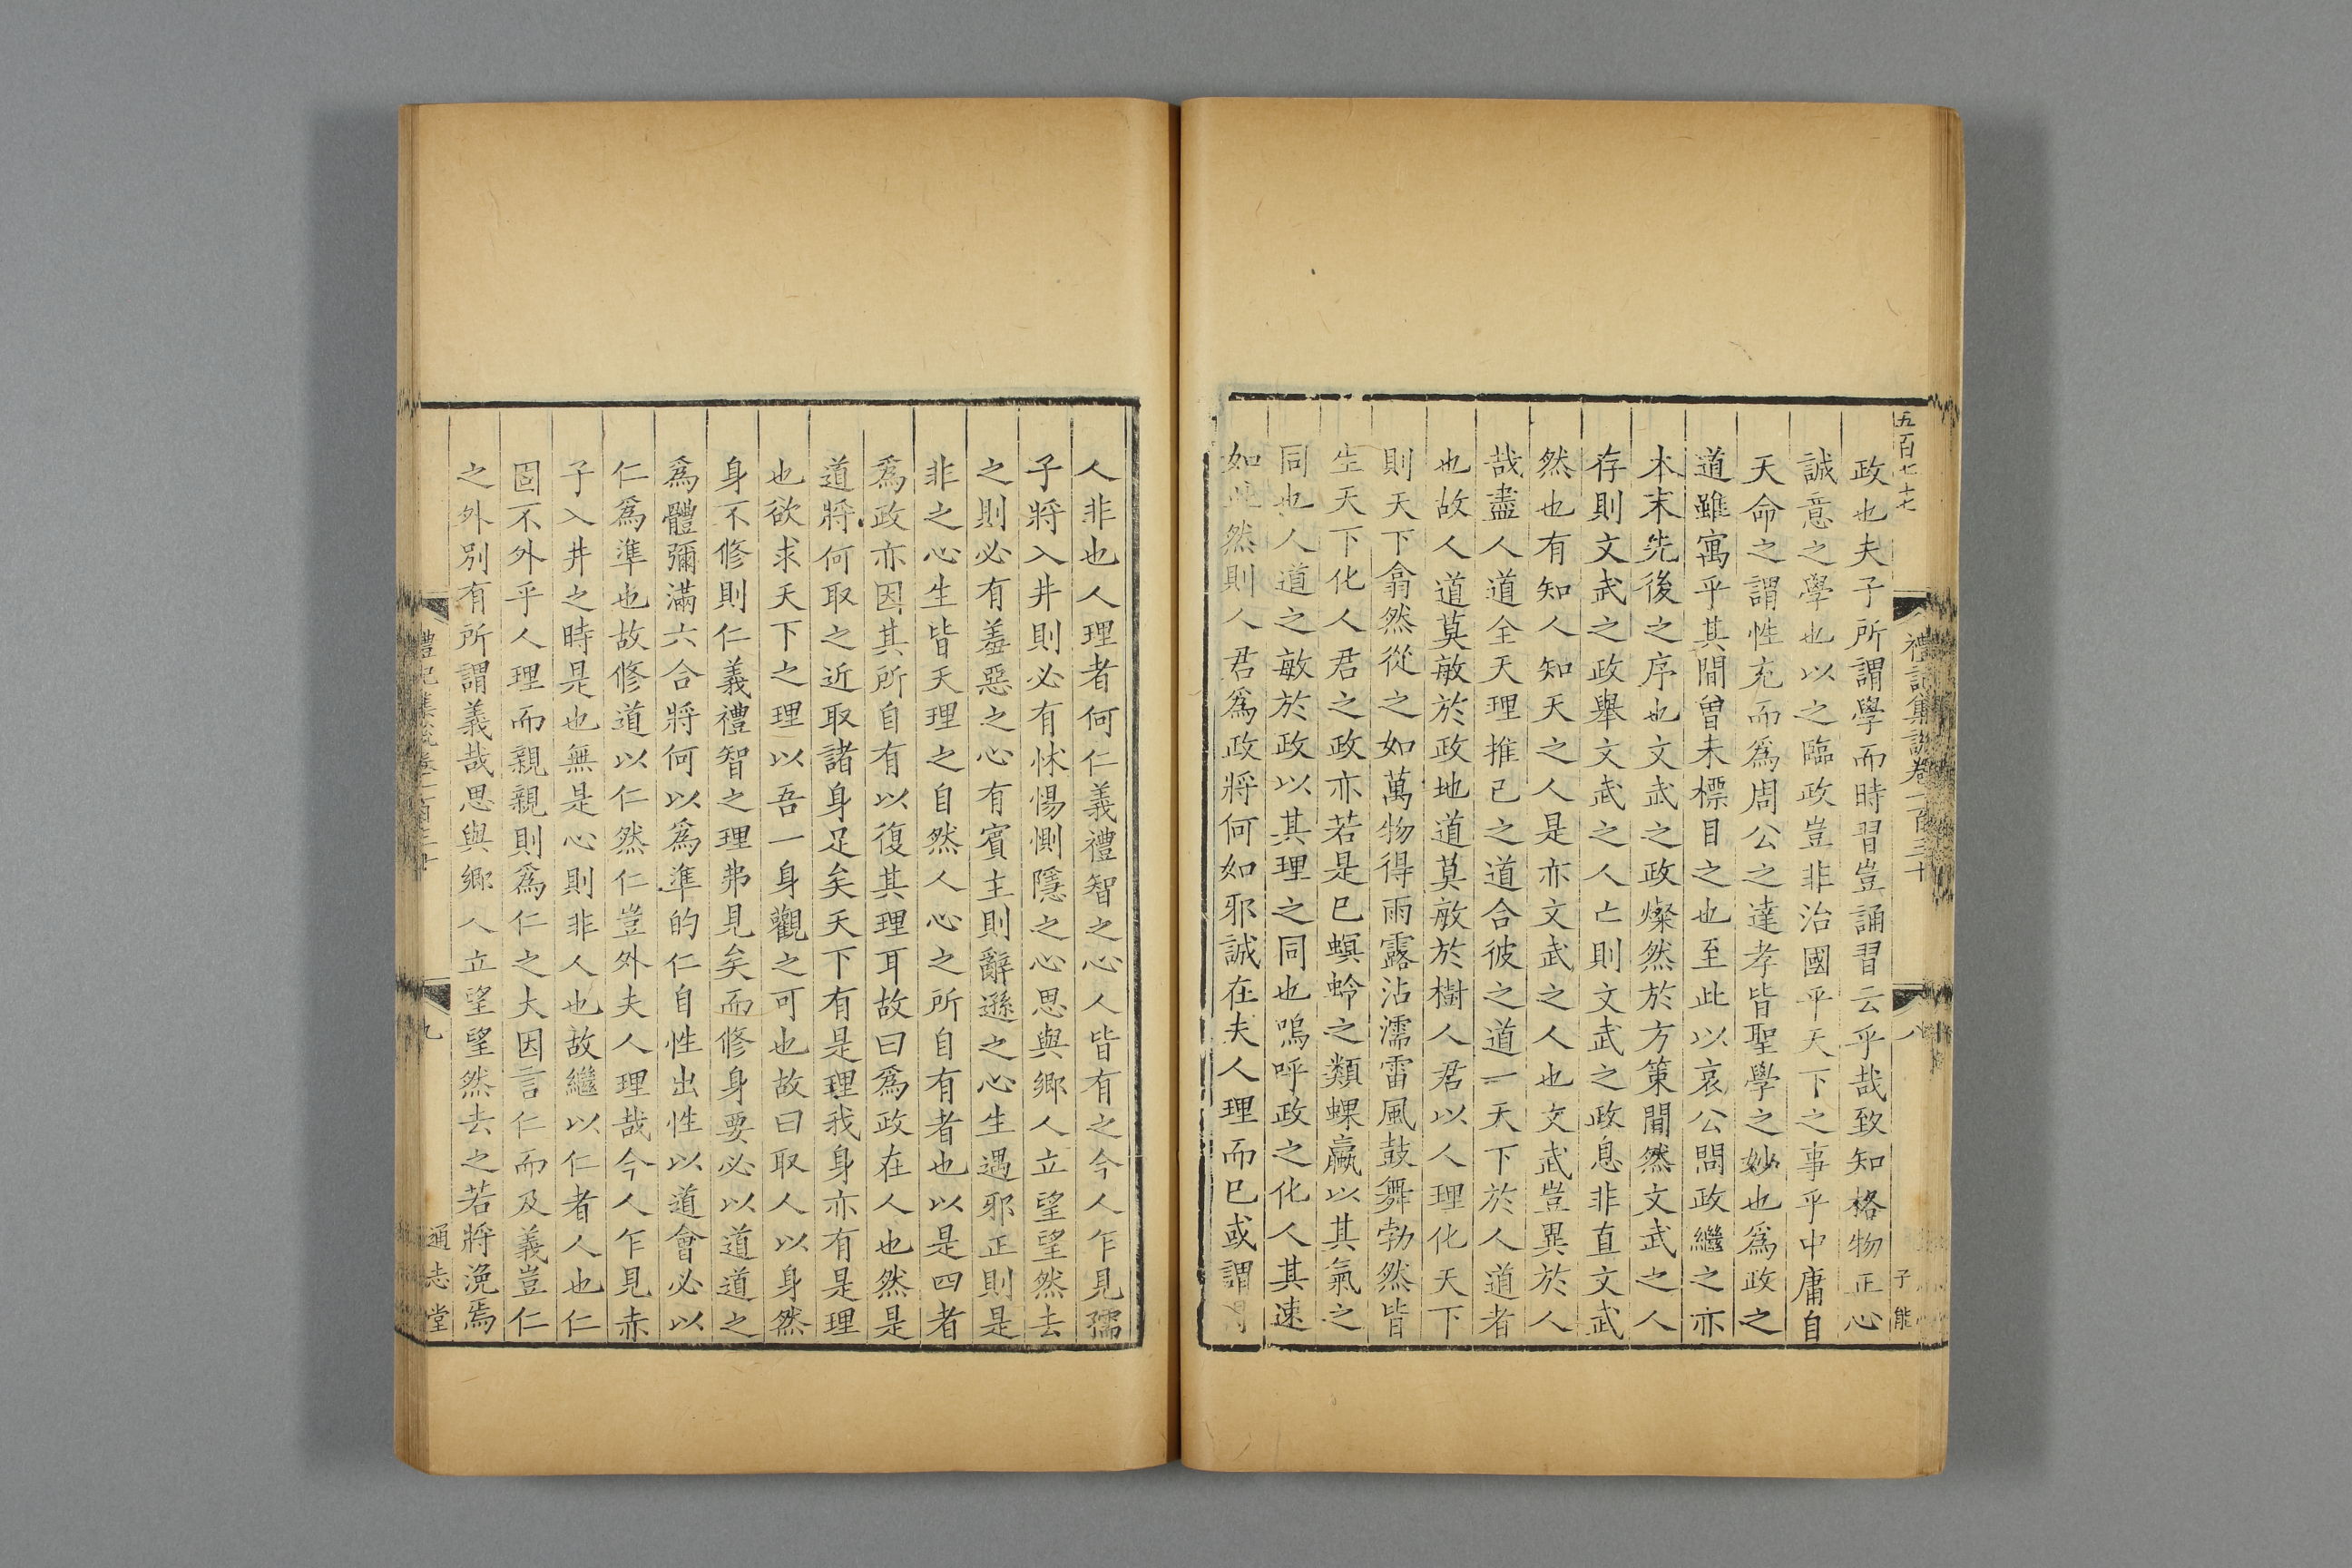 五百七十七
禮記集說卷一百三十
八
子能
政也夫子所謂學而時習豈誦習云乎哉致知格物正心
誠意之學也以之臨政豈非治國平天下之事乎中庸自
天命之謂性充而爲周公之達孝皆聖學之妙也爲政之
道雖寓乎其間曽未標目之也至此以哀公問政繼之亦
本末先後之序也文武之政燦然於方策間然文武之人
存則文武之政舉文武之人亡則文武之政息非直文武
然也有知人知天之人是亦文武之人也文武豈異於人
哉盡人道全天理推已之道合彼之道一天下於人道者
也故人道莫敏於政地道莫敏於樹人君以人理化天下
則天下翕然從之如萬物得雨露沾濡雷風鼓舞勃然皆
生天下化人君之政亦若是巳螟蛉之類蜾蠃以其氣之
同也人道之敏於政以其理之同也嗚呼政之化人其速
如然則人君爲政將何如邪誠在夫人理而巳或謂
人非也人理者何仁義禮智之心人皆有之今人乍見孺
子將入井則必有怵惕惻隱之心思與鄉人立望望然去
之則必有羞惡之心有賓主則辭遜之心生遇邪正則是
非之心生皆天理之自然人心之所自有者也以是四者
爲政亦因其所自有以復其理耳故曰爲政在人也然是
道將何取之近取諸身足矣天下有是理我身亦有是理
也欲求天下之理以吾一身觀之可也故曰取人以身然
身不修則仁義禮智之理弗見矣而修身要必以道道之
爲體彌滿六合將何以爲準的仁自性出性以道會必以
仁爲準也故修道以仁然仁豈外夫人理哉今人乍見赤
子入井之時是也無是心則非人也故繼以仁者人也仁
固不外乎人理而親親則爲仁之大因言仁而及義豈仁
之外別有所謂義哉思與鄉人立望望然去之若將浼焉
禮記集說卷一百三十
九
通志堂